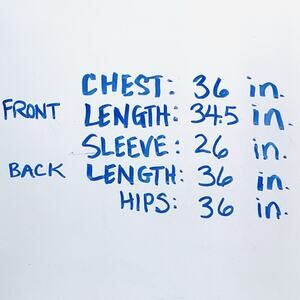 CHEST: 36 in.
FRONT LENGTH: 34.5 in.
SLEEVE: 26 in.
BACK LENGTH: 36 in.
HIPS: 36 in.